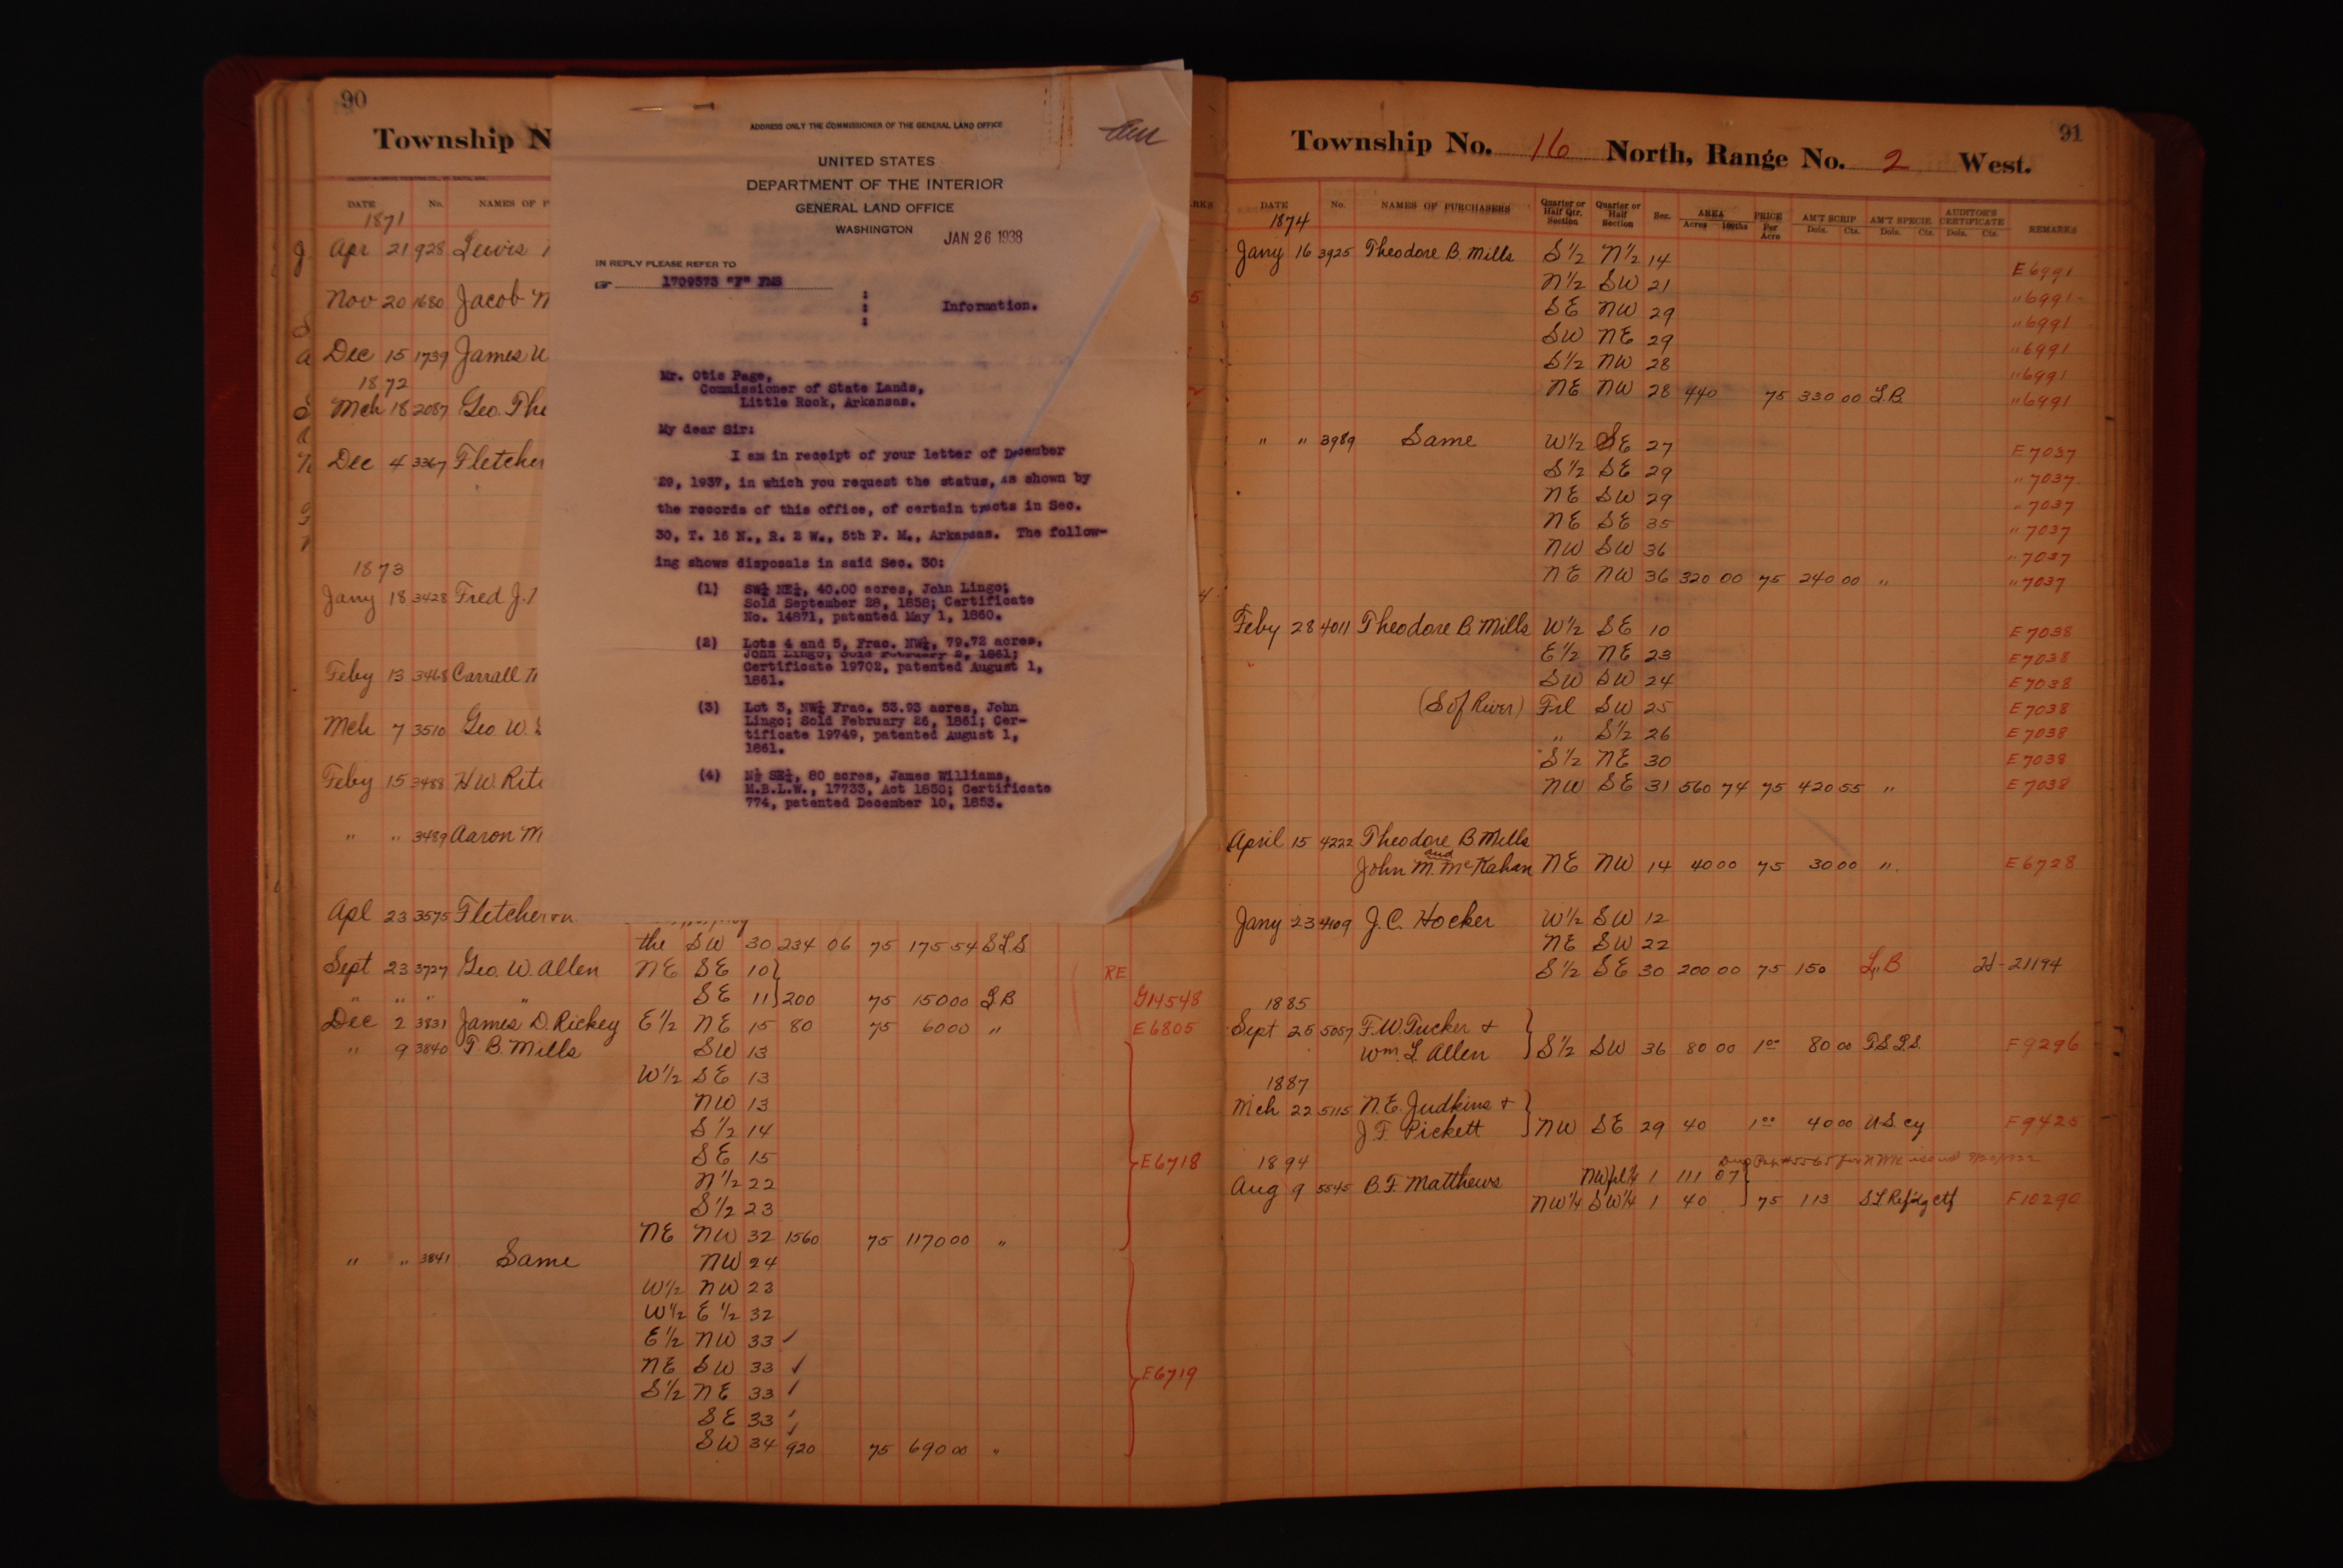 90
Township N
DATE No. NAMES OF P
1871
Apr 21 928 Lewis
Nov 20 1680 Jacob
Dec 15 1739 James W
1872
Mch 18 2087 Geo. The
Dec 4 3367 Fletcher
1873
Jany 18 3428 Fred J.
Feby 13 3468 Carrall
Mch 7 3510 Geo W.
Feby 15 3488 H W. Rite
" " 3489 Aaron M
Apl 23 3575 Fletcher
the SW 30 234 06 75 175 54 S L S
Sept 23 3727 Geo. W. Allen NE SE 10 RE
" " " " SE 11 200 75 150 00 L B G14548
Dec 2 3831 James D. Rickey E 1/2 NE 15 80 75 60 00 " E6805
" 9 3840 T B. Mills SW 13
W 1/2 SE 13
NW 13
S 1/2 14
SE 15 E6718
N 1/2 22
S 1/2 23
NE NW 32 1560 75 1170 00 "
" " 3841 Same NW 24
W 1/2 NW 23
W 1/2 E 1/2 32
E 1/2 NW 33 ✓
NE SW 33 ✓
S 1/2 NE 33 ✓ E6719
SE 33 ✓
SW 34 920 75 690 00 "
ADDRESS ONLY THE COMMISSIONER OF THE GENERAL LAND OFFICE
UNITED STATES
DEPARTMENT OF THE INTERIOR
GENERAL LAND OFFICE
WASHINGTON
JAN 26 1938
IN REPLY PLEASE REFER TO
1709573 "F" FMS
: Information.
:
:
Mr. Otis Page,
Commissioner of State Lands,
Little Rock, Arkansas.
My dear Sir:
I am in receipt of your letter of December
29, 1937, in which you request the status, as shown by
the records of this office, of certain tracts in Sec.
30, T. 16 N., R. 2 W., 5th P. M., Arkansas. The follow-
ing shows disposals in said Sec. 30:
(1) SW¼ NE¼, 40.00 acres, John Lingo;
Sold September 28, 1858; Certificate
No. 14871, patented May 1, 1860.
(2) Lots 4 and 5, Frac. NW¼, 79.72 acres,
John Lingo; Sold February 2, 1861;
Certificate 19702, patented August 1,
1861.
(3) Lot 3, NW¼ Frac. 53.93 acres, John
Lingo; Sold February 26, 1861; Cer-
tificate 19749, patented August 1,
1861.
(4) N½ SE¼, 80 acres, James Williams,
M.B.L.W., 17733, Act 1850; Certificate
774, patented December 10, 1853.
91
Township No. 16 North, Range No. 2 West.
DATE No. NAMES OF PURCHASERS Quarter or Half Qtr. Section Quarter or Half Section Sec. AREA Acres 100ths PRICE Per Acre AM'T SCRIP Dols. Cts. AM'T SPECIE Dols. Cts. AUDITOR'S CERTIFICATE Dols. Cts. REMARKS
1874
Jany 16 3925 Theodore B. Mills S 1/2 N 1/2 14 E6991
N 1/2 SW 21 " 6991
SE NW 29 " 6991
SW NE 29 " 6991
S 1/2 NW 28 " 6991
NE NW 28 440 75 330 00 L.B. " 6991
" " 3989 Same W 1/2 SE 27 E7037
S 1/2 SE 29 " 7037
NE SW 29 " 7037
NE SE 35 " 7037
NW SW 36 " 7037
NE NW 36 320 00 75 240 00 " " 7037
Feby 28 4011 Theodore B. Mills W 1/2 SE 10 E7038
E 1/2 NE 23 E7038
SW SW 24 E7038
(S of River) Frl SW 25 E7038
" S 1/2 26 E7038
S 1/2 NE 30 E7038
NW SE 31 560 74 75 420 55 " E7038
April 15 4222 Theodore B Mills
and
John M. McKahan NE NW 14 40 00 75 30 00 " E6728
Jany 23 4109 J. C. Hocker W 1/2 SW 12
NE SW 22
S 1/2 SE 30 200 00 75 150 L B 21194
1885
Sept 25 5057 F. W Tucker +
Wm. L. Allen S 1/2 SW 36 80 00 1 00 80 00 F9296
1887
Mch 22 5115 N. E. Judkins +
J F Pickett NW SE 29 40 1 00 40 00 U.S. cy F9425
1894
Aug 9 5545 B. F. Matthews NW frl 1/4 1 111 07
NW 1/4 SW 1/4 1 40 75 113 S L Ref'dg ctf F10290